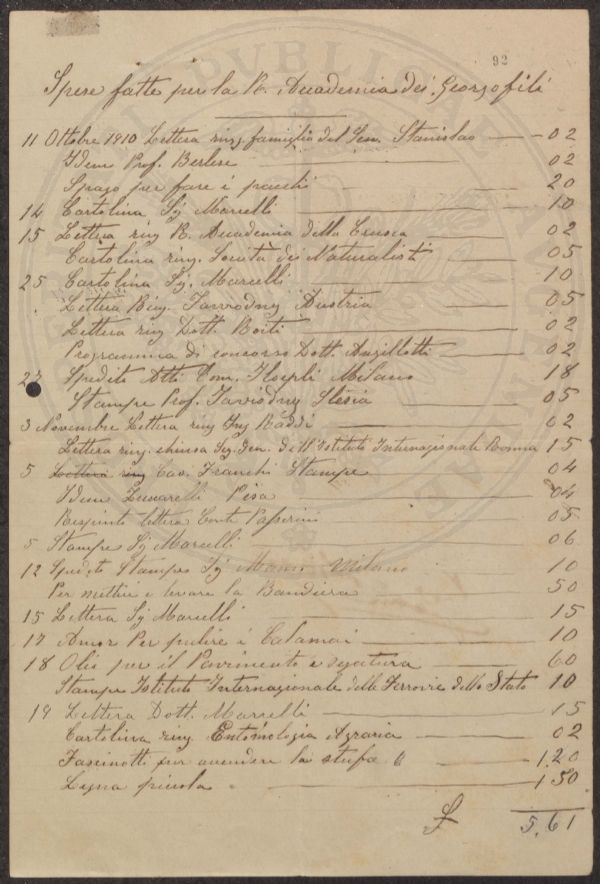 92
Spese fatte per la R. Accademia dei Georgofili
11 Ottobre 1910 Lettera ring famiglia del Sen. Stanislao 02
Idem Prof. Berlese 02
Spago per fare i pacchi 20
14 Cartolina Sig Marcelli 10
15 Lettera ring R. Accademia della Crusca 02
Cartolina ring. Società dei Naturalisti 05
25 Cartolina Sig. Marcelli 10
Lettera Ring. Austria 05
Lettera ring Dott. Boiti 02
Programma di concorso Dott. Anzillotti 02
27 Spedito Atti Com. Hoepli Milano 18
Stampe Prof. Slesia 05
3 Novembre Lettera ring Ing Raddi 02
Lettera ring. chiusa Seg. Gen. dell'Istituto Internazionale Roma 15
5 Lettera ring Cav. Franchi Stampe 04
Idem Zuccarelli Pisa 04
Respinto lettera Conte Passerini 05
5 Stampe Sig Marcelli 06
12 Spedito Stampe Sig Milano 10
Per mettere e levare la Bandiera 50
15 Lettera Sig Marcelli 15
17 Per pulire i Calamai 10
18 Olio per il Pavimento e segatura 60
Stampe Istituto Internazionale delle Ferrovie dello Stato 10
19 Lettera Dott. Marcelli 15
Cartolina ring. Entomologia Agraria 02
Fascinotti per accendere la stufa 6 1.20
Legna piccola 1 50
£ 5.61